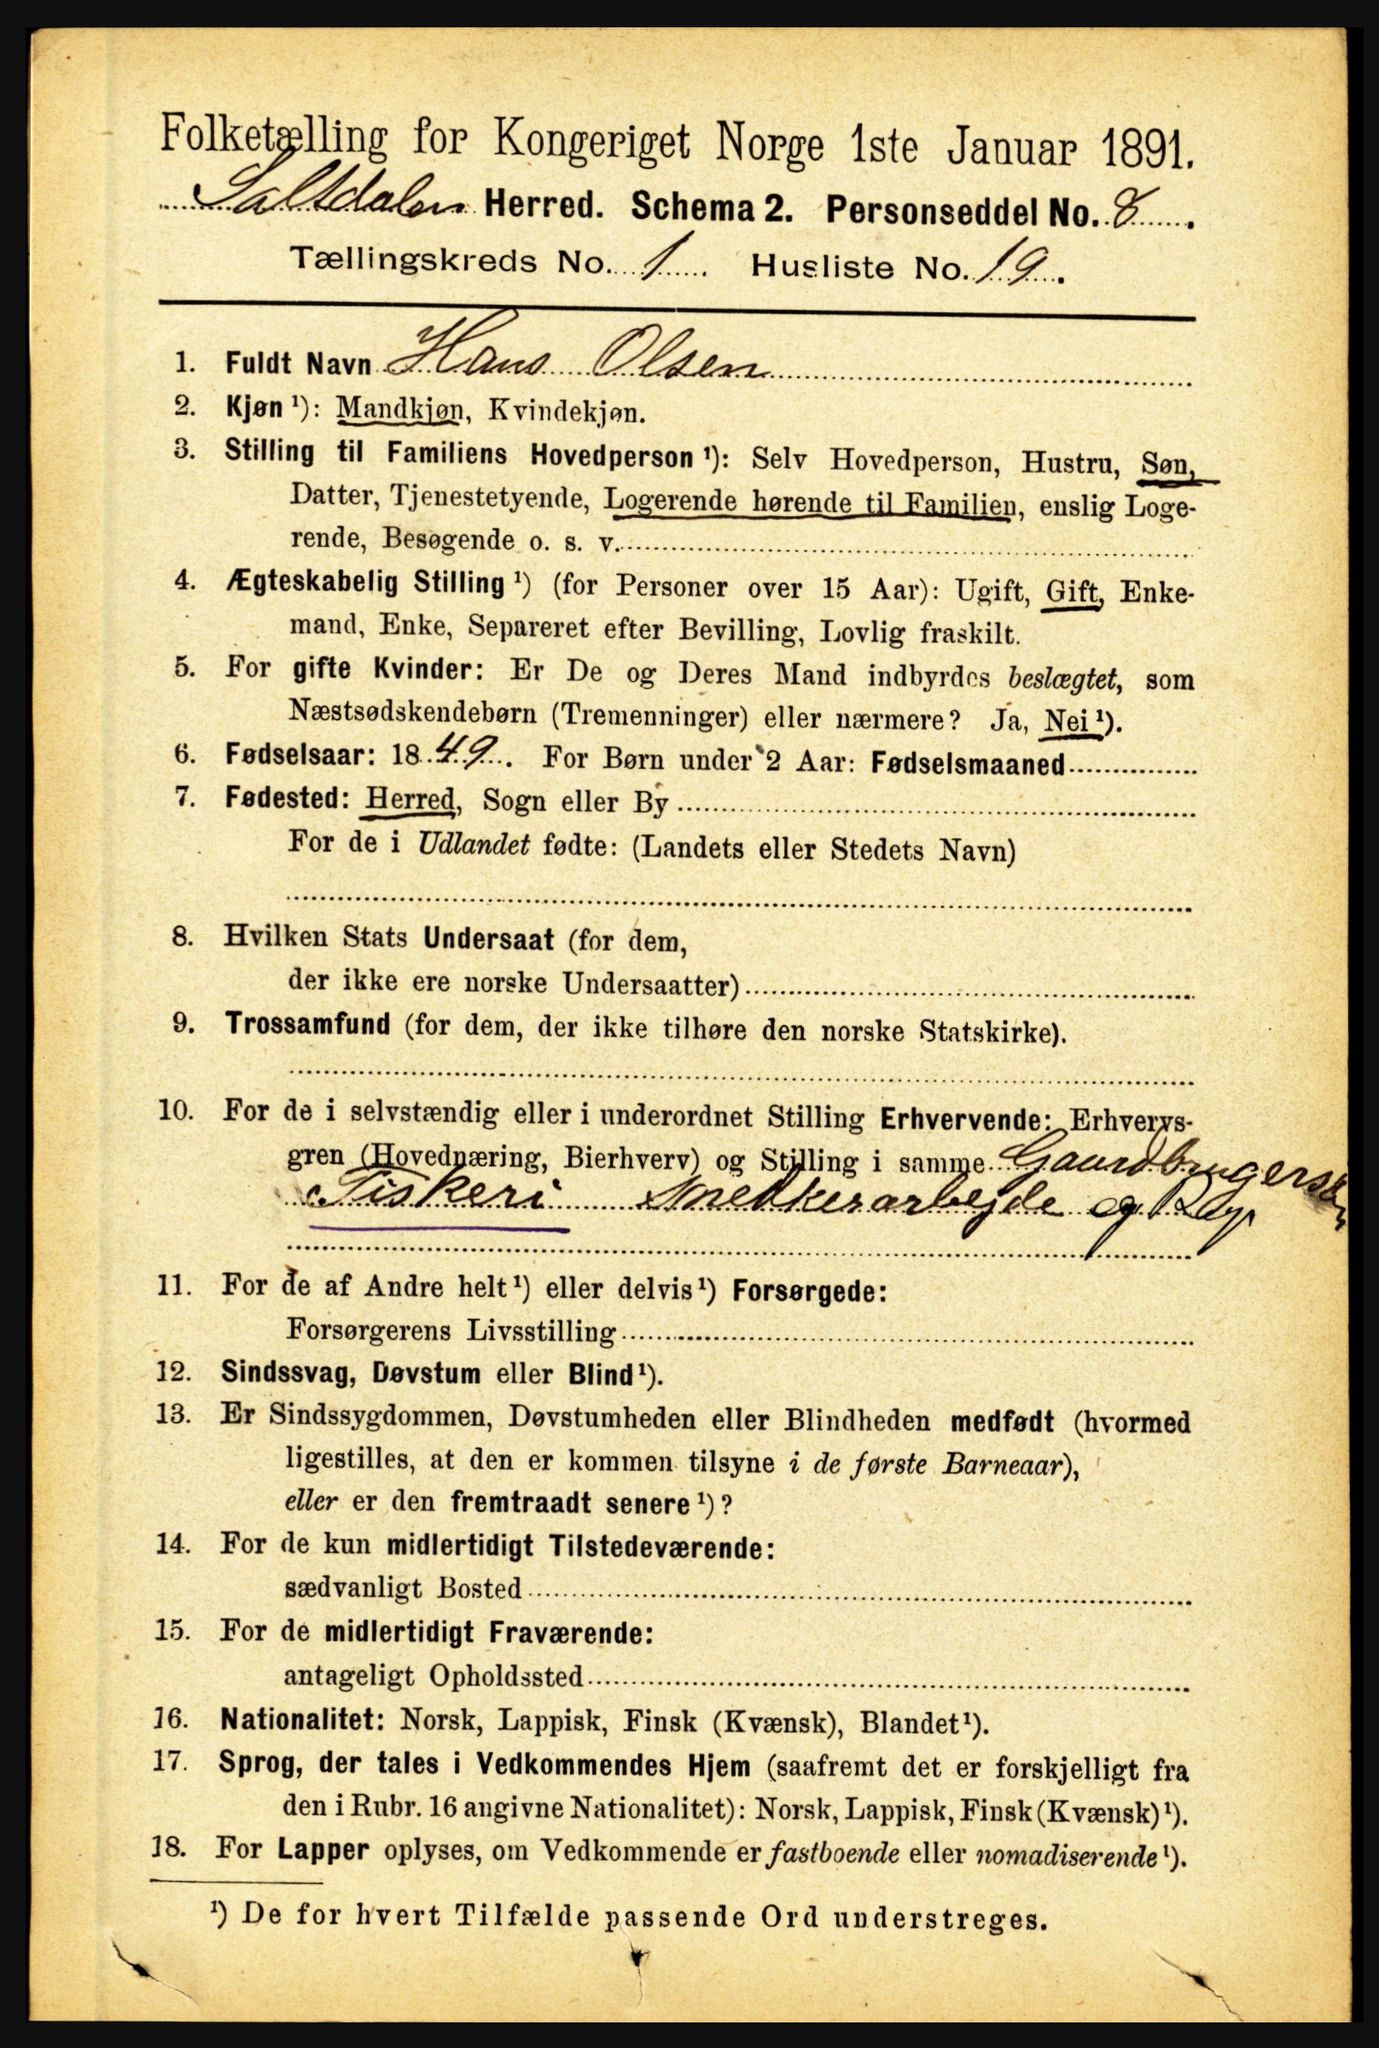 Folketælling for Kongeriget Norge 1ste Januar 1891.
Saltdalen Herred. Schema 2. Personseddel No. 8.
Tællingskreds No. 1 Husliste No. 19.
1. Fuldt Navn Hans Olsen
2. Kjøn ¹): Mandkjøn, Kvindekjøn.
3. Stilling til Familiens Hovedperson ¹): Selv Hovedperson, Hustru, Søn,
Datter, Tjenestetyende, Logerende hørende til Familien, enslig Loge-
rende, Besøgende o. s. v.
4. Ægteskabelig Stilling ¹) (for Personer over 15 Aar): Ugift, Gift, Enke-
mand, Enke, Separeret efter Bevilling, Lovlig fraskilt.
5. For gifte Kvinder: Er De og Deres Mand indbyrdes beslægtet, som
Næstsødskendebørn (Tremenninger) eller nærmere? Ja, Nei ¹).
6. Fødselsaar: 1849. For Børn under 2 Aar: Fødselsmaaned
7. Fødested: Herred, Sogn eller By
For de i Udlandet fødte: (Landets eller Stedets Navn)
8. Hvilken Stats Undersaat (for dem,
der ikke ere norske Undersaatter)
9. Trossamfund (for dem, der ikke tilhøre den norske Statskirke).
10. For de i selvstændig eller i underordnet Stilling Erhvervende: Erhvervs-
gren (Hovednæring, Bierhverv) og Stilling i samme Gaardbrugersøn
Fiskeri Snedkerarbejde og
11. For de af Andre helt ¹) eller delvis ¹) Forsørgede:
Forsørgerens Livsstilling
12. Sindssvag, Døvstum eller Blind ¹).
13. Er Sindssygdommen, Døvstumheden eller Blindheden medfødt (hvormed
ligestilles, at den er kommen tilsyne i de første Barneaar),
eller er den fremtraadt senere ¹)?
14. For de kun midlertidigt Tilstedeværende:
sædvanligt Bosted
15. For de midlertidigt Fraværende:
antageligt Opholdssted
16. Nationalitet: Norsk, Lappisk, Finsk (Kvænsk), Blandet ¹).
17. Sprog, der tales i Vedkommendes Hjem (saafremt det er forskjelligt fra
den i Rubr. 16 angivne Nationalitet): Norsk, Lappisk, Finsk (Kvænsk) ¹).
18. For Lapper oplyses, om Vedkommende er fastboende eller nomadiserende ¹).
¹) De for hvert Tilfælde passende Ord understreges.